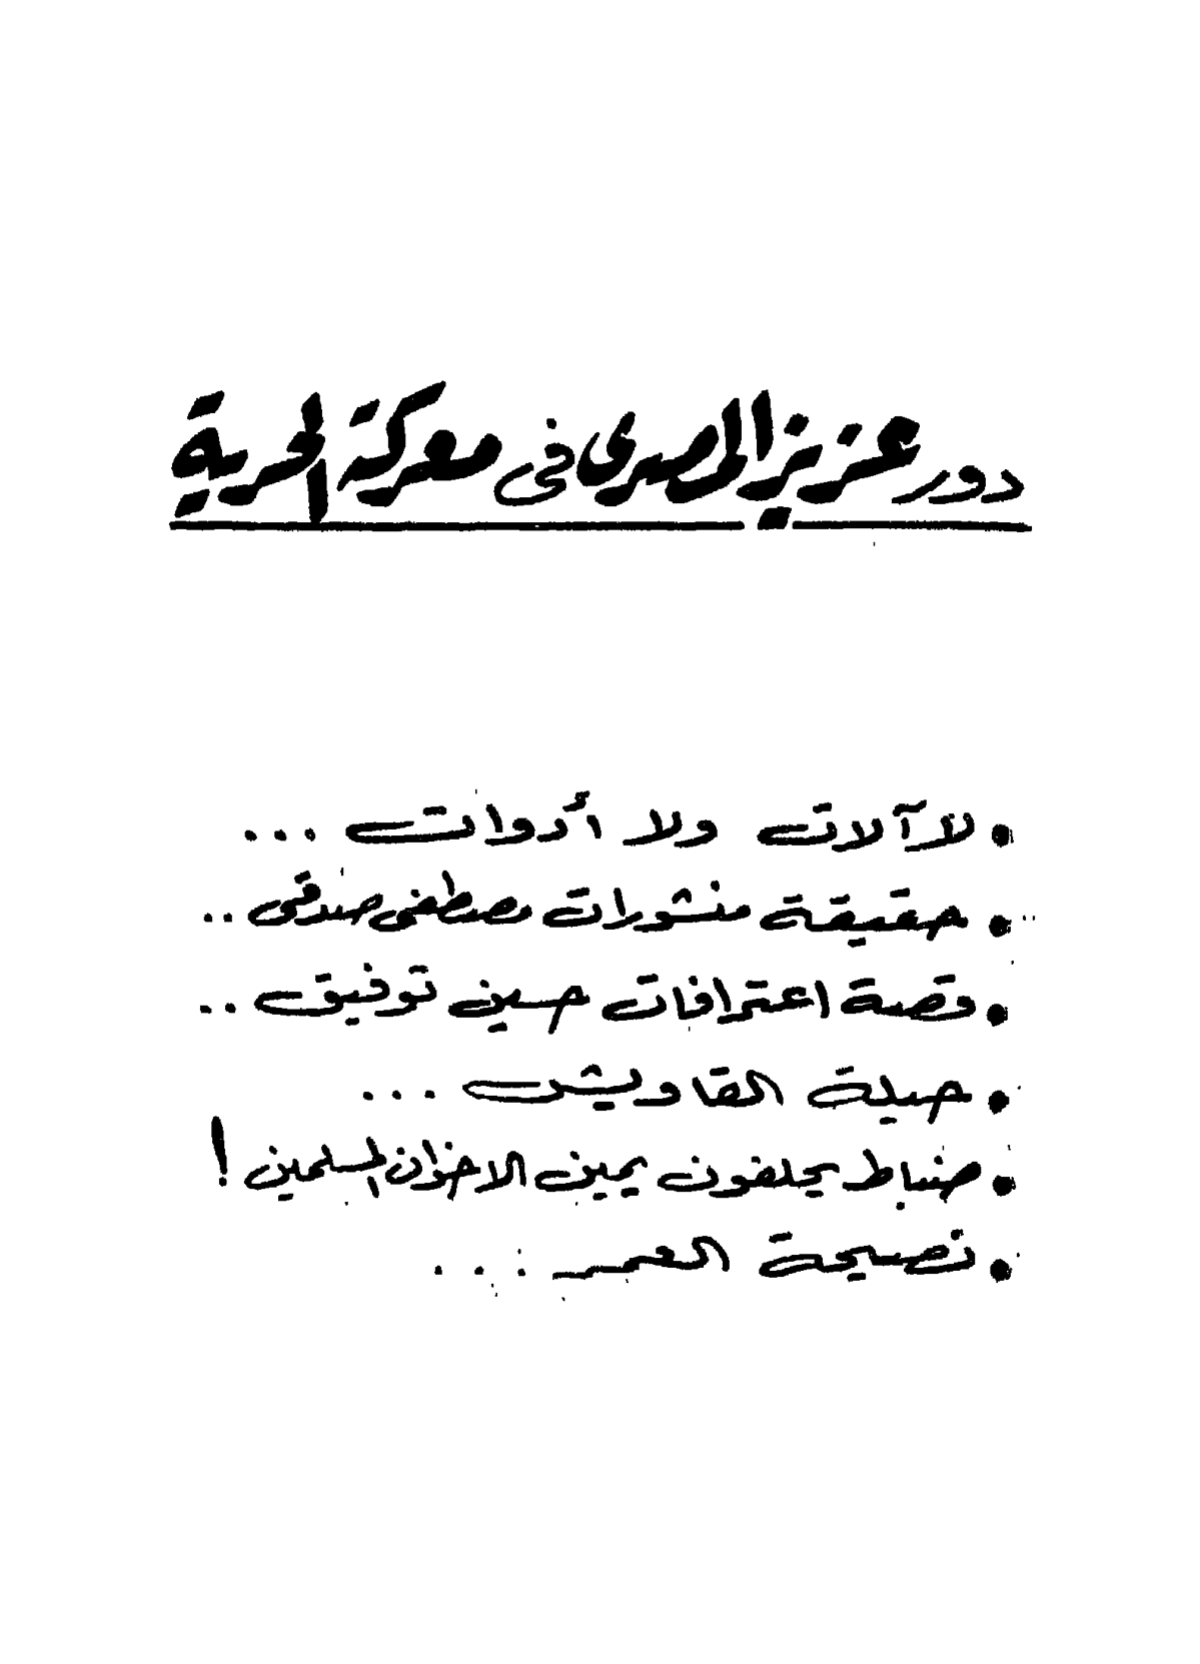 دور عزيز المصرى فى معركة الحرية
• لا آلات ولا أدوات ...
• حقيقة منشورات مصطفى صدقى ..
• قصة اعترافات حسين توفيق ..
• حيلة القاويش ...
• ضباط يحلفون يمين الاخوان المسلمين !
• نصيحة العمر ...